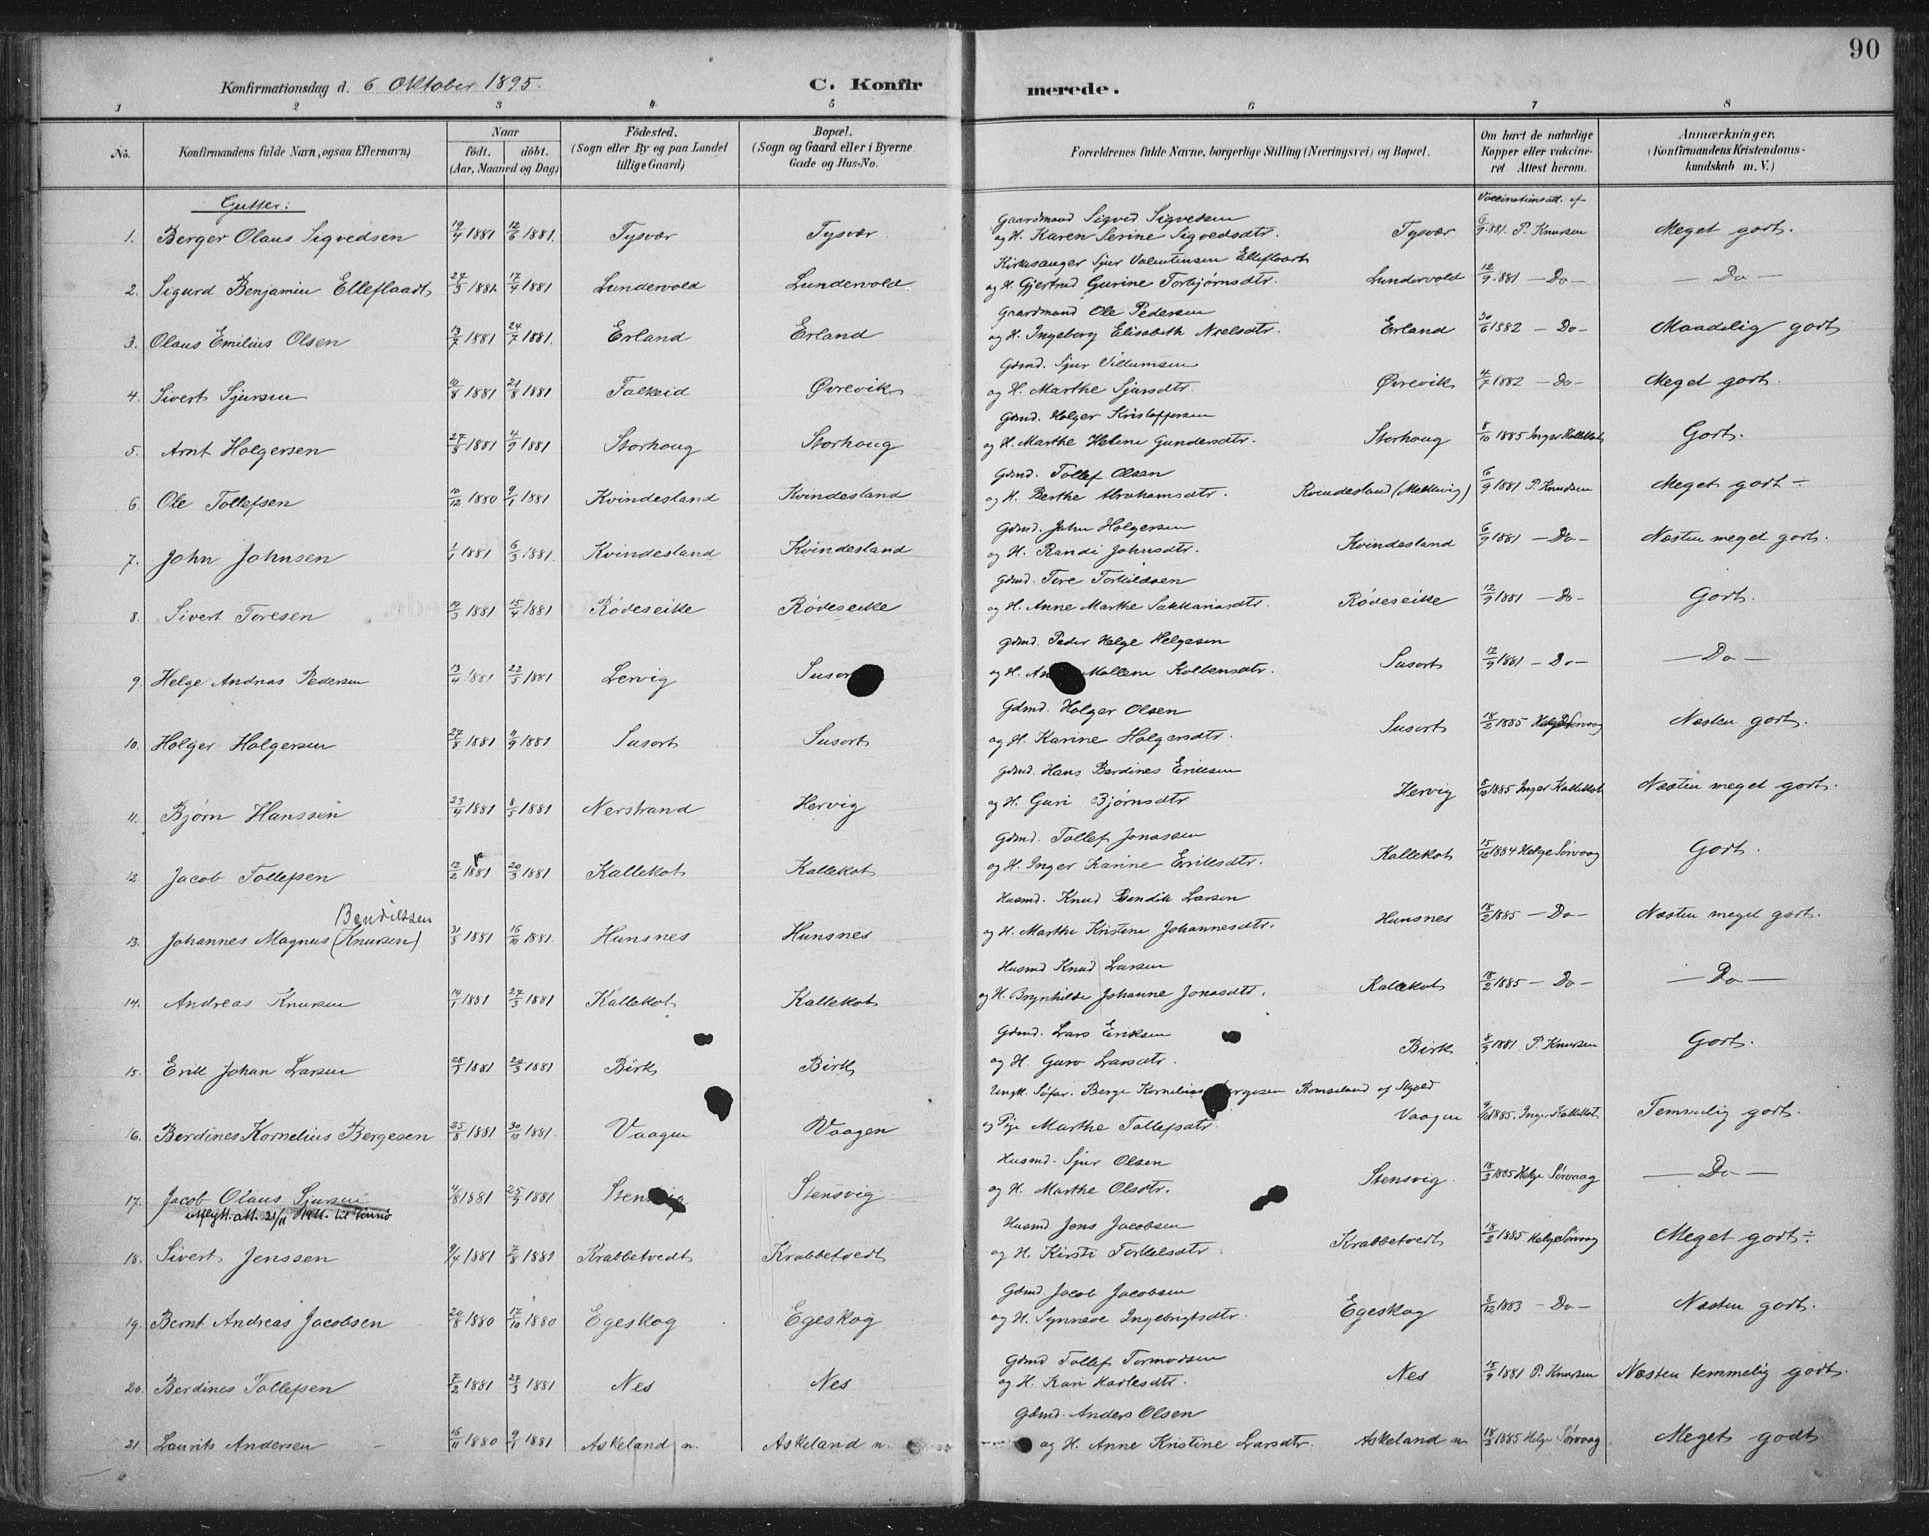 90
Konfirmationsdag d. 6 Oktober 1895.
C. Konfirmerede.
1 2 3 4 5 6 7 8
No.
Konfirmandens fulde Navn, ogsaa Efternavn)
Naar
født. døbt.
(Aar, Maaned og Dag)
Fødested.
(Sogn eller By og paa Landet
tillige Gaard)
Bopæl.
(Sogn og Gaard eller i Byerne
Gade og Hus-No.
Forældrenes fulde Navne, borgerlige Stilling (Næringsvei) og Bopæl.
Om havt de naturlige
Kopper eller vakcine-
ret Attest herom.
Anmærkninger.
(Konfirmandens Kristendoms-
kundskab m. V.)
Gutter: Vaccinationsatt. af
Gaardmand Sigved Sigvedsen
1. Berger Olaus Sigvedsen 19/4 1881 12/6 1881. Tysvær Tysvær og H. Karen Serine Sigvedsdtr. Tysvær 6/9 881. P. Knutsen Meget godt.
Kirkesanger Sjur Valentinsen Elleflaadt
2. Sigurd Benjamin Elleflaadt 27/3 1881 17/4 1881 Lundervold Lundervold og H. Gjertrud Gurine Torbjørnsdtr. Lundervold 12/9 881 - Do - - Do -
Gaardmand Ole Pedersen
3. Olaus Emilius Olsen 13/7 1881 24/7 1881. Erland Erland og H. Ingeborg Elisabeth Nielsdtr. Erland 30/6 1882 - Do - Maadelig godt
Gdmd. Sjur Villumsen
4. Sivert Sjursen 10/8 1881 21/8 1881 Falkeid Øvrevik og H. Marthe Sjursdtr. Øvrevik 4/7 1882 - Do - Meget godt.
Gdmd. Holger Kristoffersen
5. Arnt Holgersen 27/8 1881 4/9 1881 Storhoug Storhoug og H. Marthe Helene Gundersdtr. Storhoug 8/10 1885 Inger Kallekot Godt.
Gdmd. Tollef Olsen
6. Ole Tollefsen 10/12 1880 9/1 1881 Kvindesland Kvindesland og H. Berthe Abrahamsdtr. Kvindesland (Mellevig) 6/9 1881 P. Knudsen Meget godt ÷
Gdmd. John Holgersen
7. John Johnsen 1/1 1881 6/3 1881. Kvindesland Kvindesland og H. Randi Johnsdtr. Kvindesland 6/9 1881 - Do - Næsten meget godt.
Gdmd. Tore Torkildsen
8. Sivert Toresen 10/3 1881 15/4 1881 Rødeseike Rødeseike og H. Anne Marthe Sakkariasdtr. Rødeseike 12/9 1881 - Do - Godt.
Gdmd. Peder Helge Helgesen
9. Helge Andreas Pedersen 13/4 1881 22/5 1881 Lervig Susort og H. Mallene Kolbensdtr. Susort 12/9 1881 - Do - - Do -
Gdmd. Holger Olsen
10. Holger Holgersen 27/8 1881 11/9 1881 Susort Susort og H. Karine Holgersdtr. Susort 18/2 1885 Helge Sørvaag Næsten godt.
Gdmd. Hans Berdines Eriksen
11. Bjørn Hanssen 23/4 1881 8/5 1881 Nerstrand Hervig og H. Guri Bjørnsdtr Hervig 8/10 1885 Inger Kallekot Næsten meget godt.
Gdmd. Tollef Jonassen
12. Jacob Tollefsen 12/2 1881 20/3 1881 Kallekot Kallekot og H. Inger Karine Eriksdtr. Kallekot 15/12 1884 Helge Sørvaag Godt.
Bendikssen Husmd. Knud Bendik Larsen
13. Johannes Magnus (Knutsen) 31/5 1881 16/10 1881. Hunsnes Hunsnes og H. Marthe Kristine Johannesdtr. Hunsnes 18/2 1885 - Do - Næsten meget godt.
Husmd Knud Larsen
14. Andreas Knutsen 14/1 1881 27/3 1881 Kallekot Kallekot og H. Brynhilde Johanne Jonasdtr. Kallekot 18/2 1885 - Do - - Do -
Gdmd. Lars Eriksen
15. Erik Johan Larsen 28/1 1881 24/3 1881 Birk Birk og H. Guro Larsdtr. Birk 8/9 1881 P. Knutsen Godt.
Ungk. Søfar. Berge Kornelius Romseland af Skjold
16. Berdines Kornelius Bergesen 25/8 1881 30/10 1881. Vaagen Vaagen og Pige Marthe Tollefsdtr. Vaagen 9/10 1885. Inger Kallekot Temmelig godt.
Husmd. Sjur Olsen
17. Jacob Olaus Sjursen 4/8 1881 25/9 1881 Stensvig Stensvig og H. Marthe Olsdtr. Stensvig. 18/2 1885 Helge Sørvaag - Do -
utflytt. att. 21/11
Husmd Jens Jacobsen
18. Sivert Jenssen 9/4 1881 7/8 1881 Krabbetvedt Krabbetvedt og H. Kirsti Torkelsdtr Krabbetvedt 18/2 1885 Helge Sørvaag Meget godt ÷
Gdmd Jacob Jacobsen
19. Bernt Andreas Jacobsen 20/8 1880 17/10 1880 Egeskog Egeskog og H. Synneve Ingebrigtsdtr. Egeskog 8/12 1883 - Do - Næsten godt.
Gdmd Tollef Tormodsen
20. Berdines Tollefsen 7/2 1881 27/3 1881 Nes Nes og H. Kari Karlesdtr. Nes 15/9 1881 P. Knutsen Næsten temmelig godt.
Gdmd. Anders Olsen
21. Laurits Andersen 16/11 1880 9/1 1881 Askeland n. Askeland n. og H. Anne Kristine Larsdtr. Askeland n. 18/2 1885 Helge Sørvaag Meget godt.